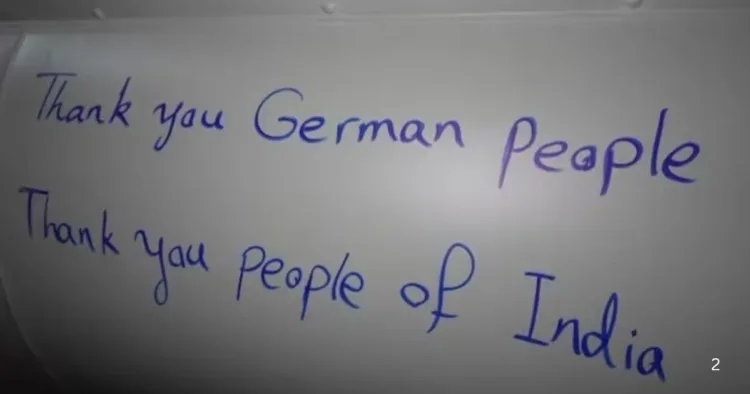 Thank you German People
Thank you People of India
2